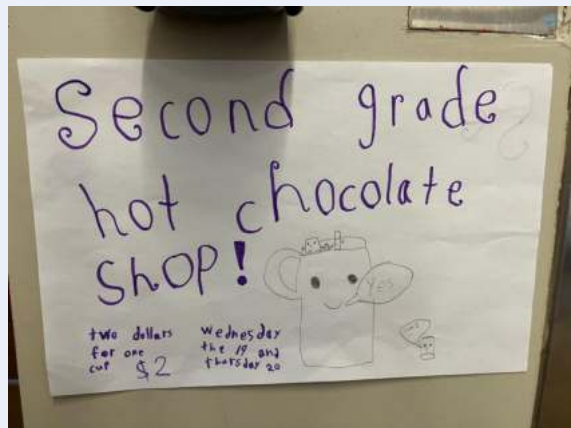 Second grade
hot chocolate
SHOP!
two dollars
for one
cup $2
Wednesday
the 19 and
thursday 20
YES